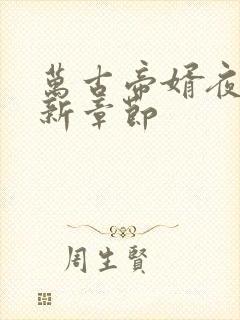 萬古帝婿夜
新章節
周生賢